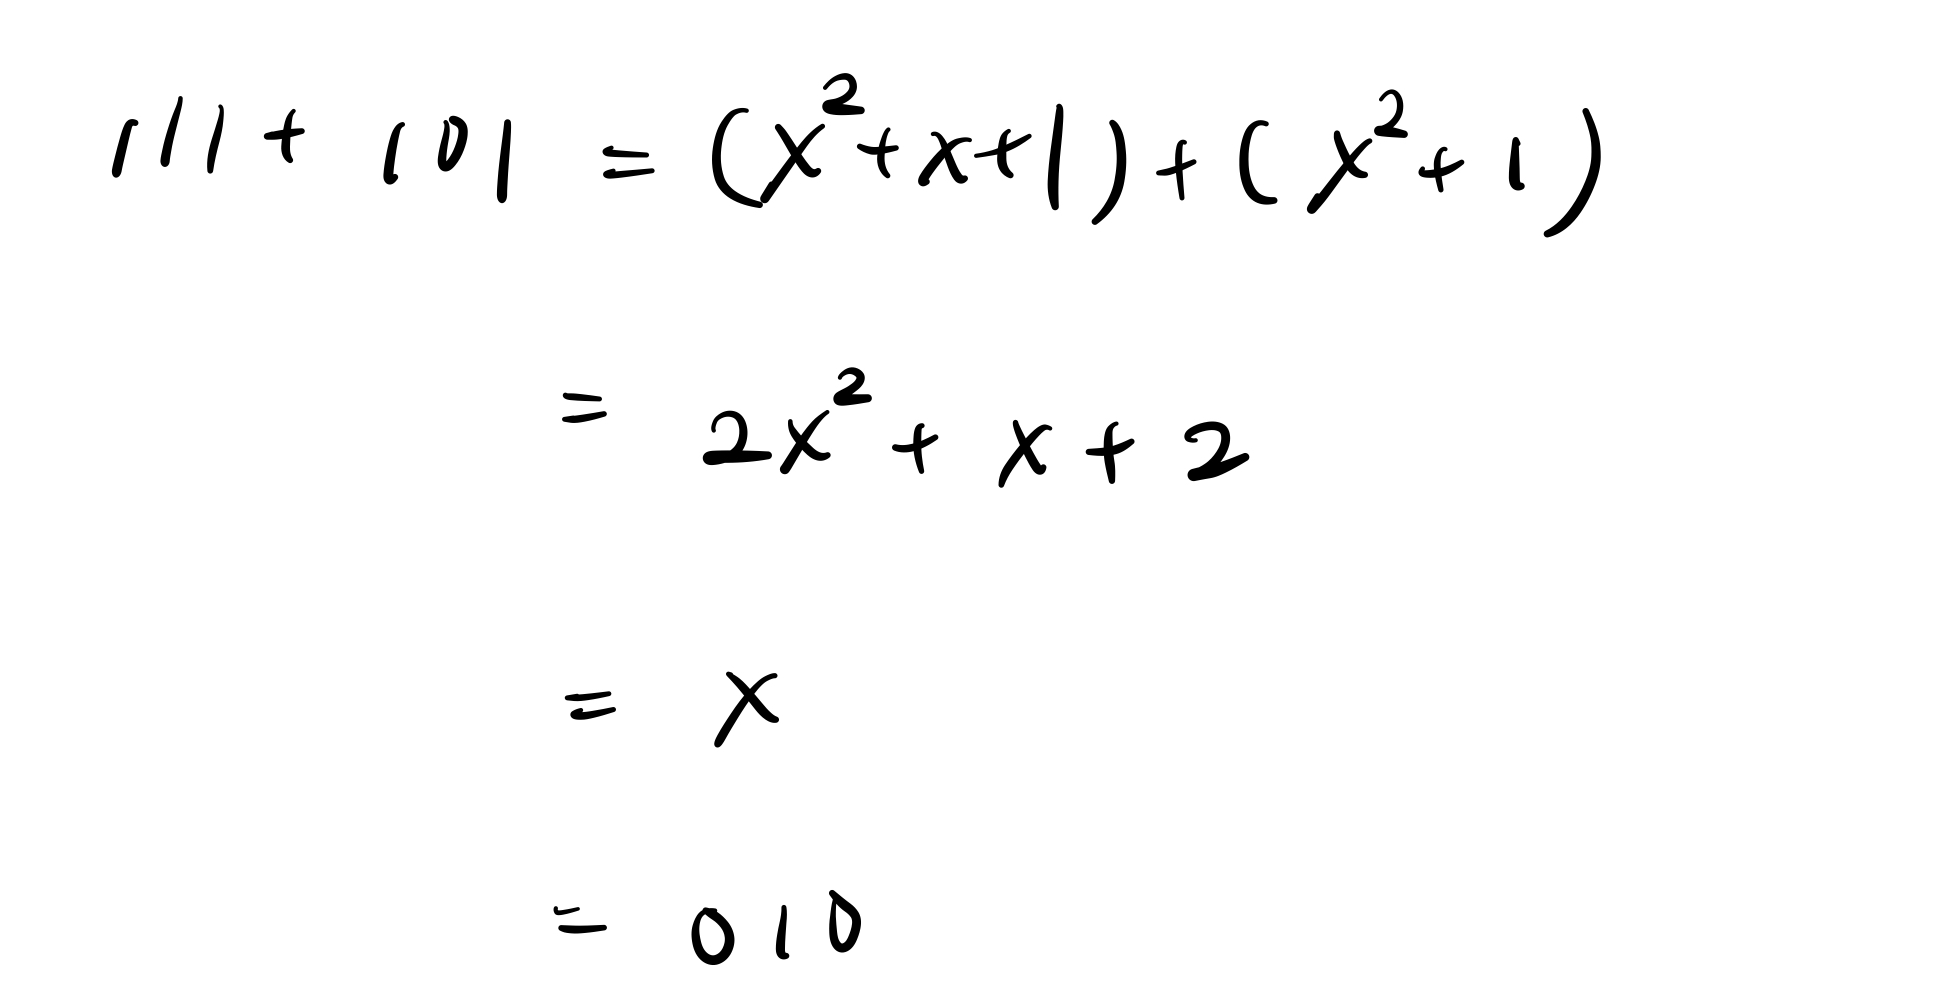 111 + 101 = (x²+x+1)+(x²+1)
= 2x²+ x + 2
= x
= 010